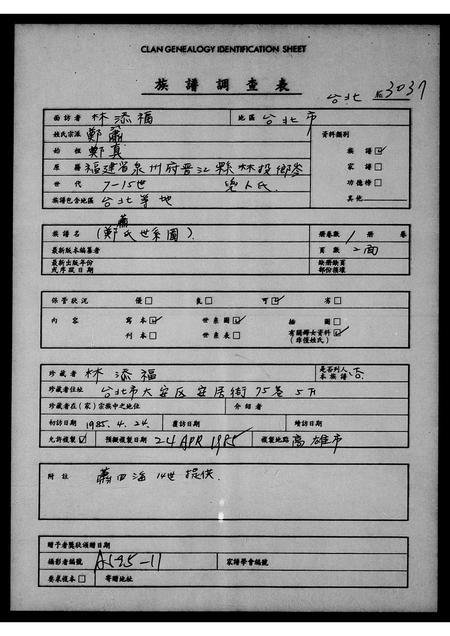 CLAN GENEALOGY IDENTIFICATION SHEET
族譜調查表
台北 № 3037
面訪者 林添福 地區 台北市
姓氏宗派 鄭 蕭 資料類別
始祖 鄭真 族譜☑
原籍 福建省泉州府晉江縣林投鄉 家譜□
世代 7-15世 功德榜□
族譜包含地區 台北等地 其他
蕭
族譜名 (鄭氏世系圖) 冊卷數 1 冊 卷
最新版本編纂者 頁數 2面
最新出版年份 缺冊缺頁
或序跋日期 部份損壞
保管狀況 優□ 良□ 可☑ 劣□
內容 寫本☑ 世系圖☑ 插圖□ 有關婦女資料☑
刊本□ 世系表□ (非僅姓氏)
珍藏者 林添福 是否列入本族譜 否
珍藏者住址 台北市大安區安居街75巷5號
珍藏者在(家)宗族中之地位 介紹者
初訪日期 1985.4.24. 覆訪日期 續訪日期
允許複製☑ 預擬複製日期 24 APR 1985 複製地點 高雄市
附註 蕭四海 14世 提供.
贈予者獎狀頒贈日期
攝影者編號 A195-11 家譜學會編號
要求複本□ 寄贈地址